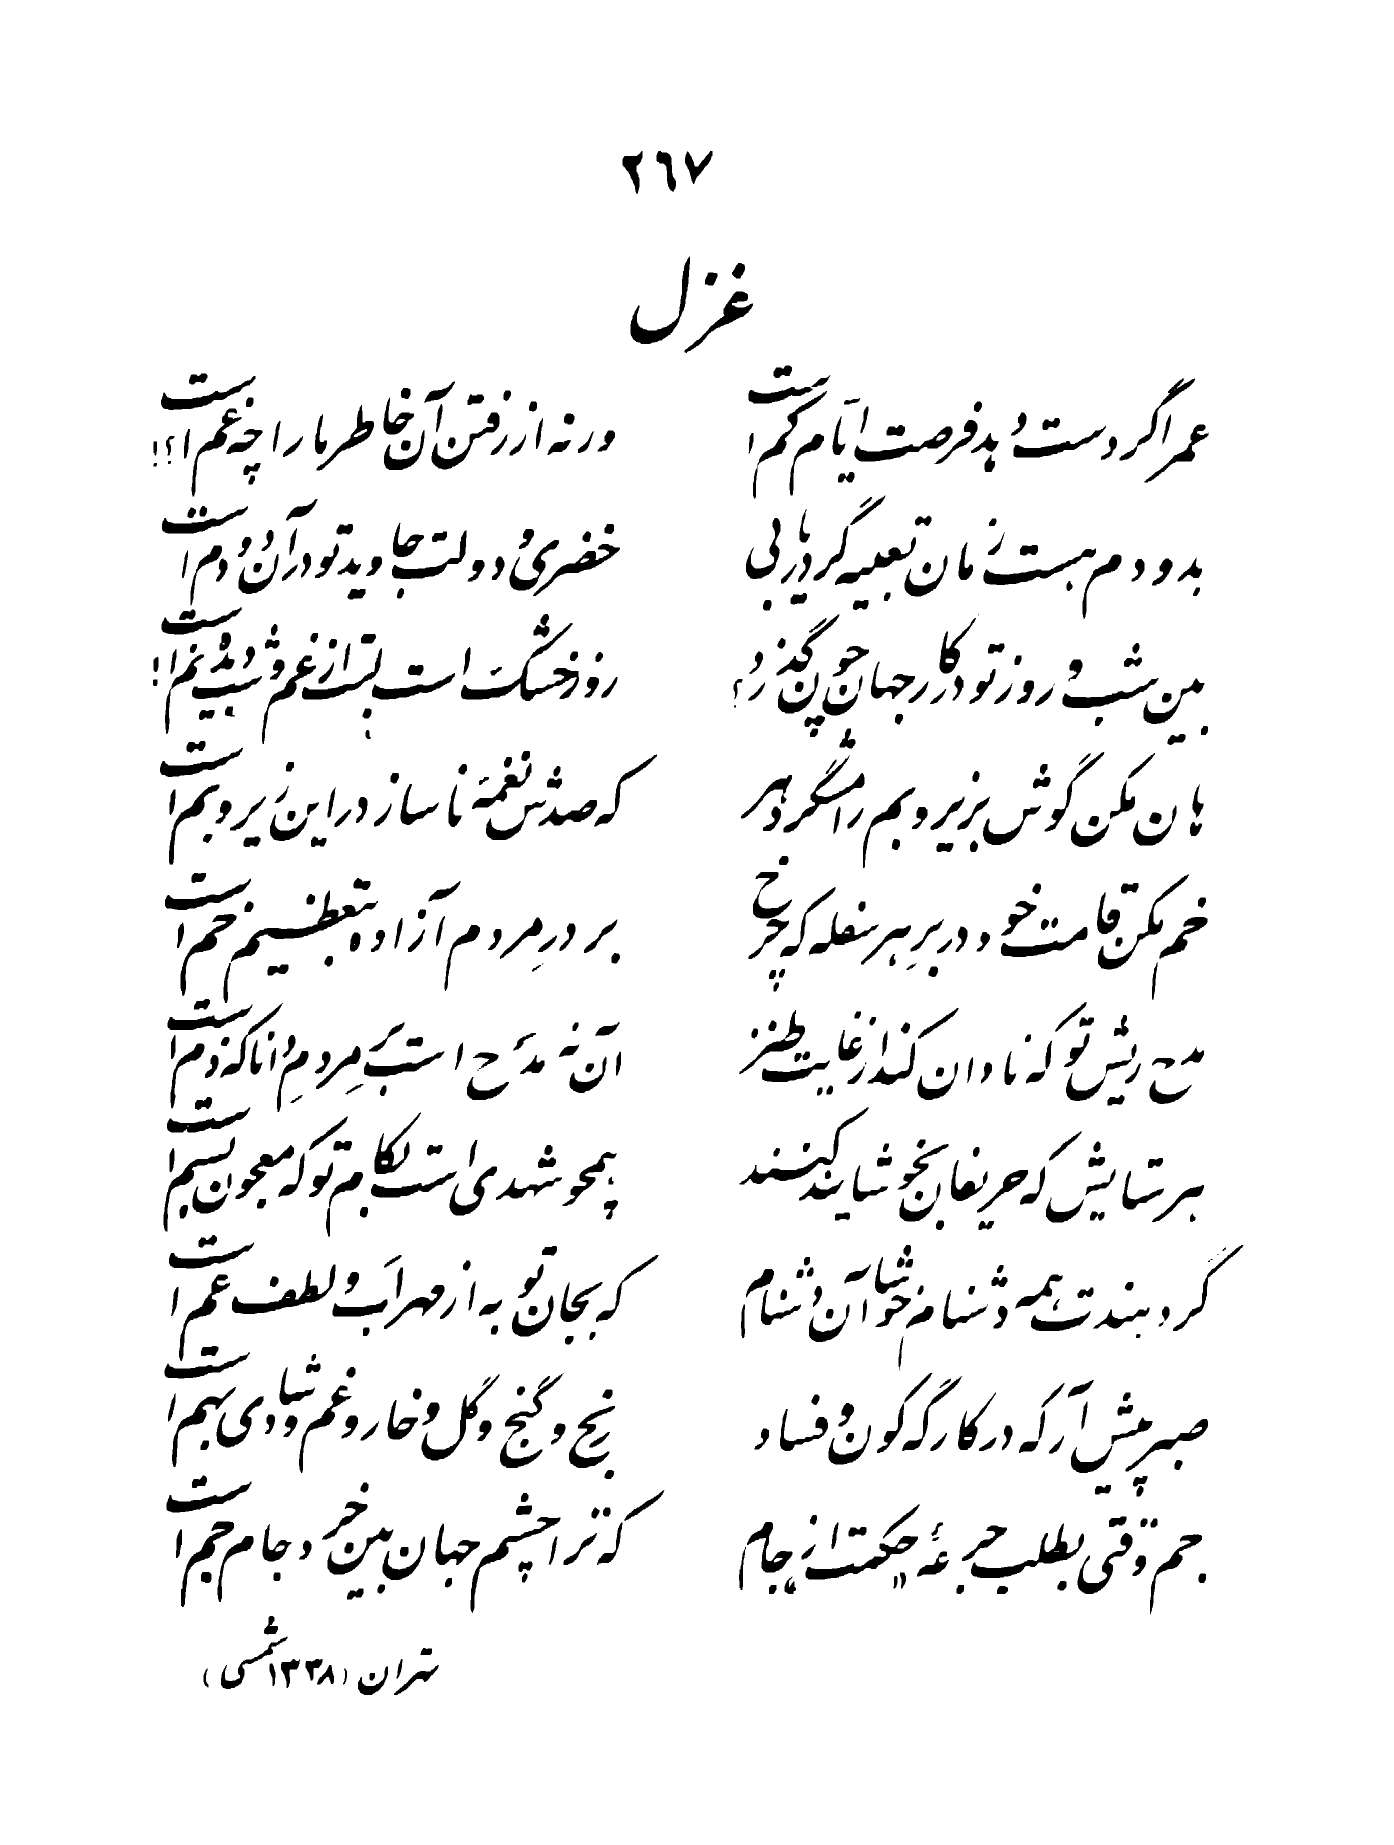 ۲٦۷
غزل
عمر اگر دست دهد فرصت ایّام کم است
ورنه از رفتن آن خاطر ما را چه غم است؟!
بدو دم هست زمان تعبیه گر دریابی
خضری و دولت جاوید تو در آن دو دم است
بین شب و روز تو در کار جهان چون گذرد؟
روز خشک است لبت از غم و شب دیده نم است!
هان مکن گوش بزیر و بم رامشگر دهر
که صدش نغمهٔ ناساز در این زیر و بم است
خم مکن قامت خود در برِ هر سفله که چرخ
بر درِ مردم آزاده بتعظیم خم است
مدح ریش تو که نادان کند از غایت طنز
آن نه مدح است برِ مردمِ دانا که ذم است
هر ستایش که حریفان بخوشایند کنند
همچو شهدی است بکام تو که معجون بسم است
گر دهندت همه دشنام خوشا آن دشنام
که بجان تو به از مهر اب و لطف عم است
صبر پیش آر که در کارگه کون و فساد
رنج و گنج و گل و خار و غم و شادی بهم است
جم وقتی بطلب جرعهٔ حکمت از جام
که ترا چشم جهان بین خرد جام جم است
تهران (۱۳۳۸ شمسی)